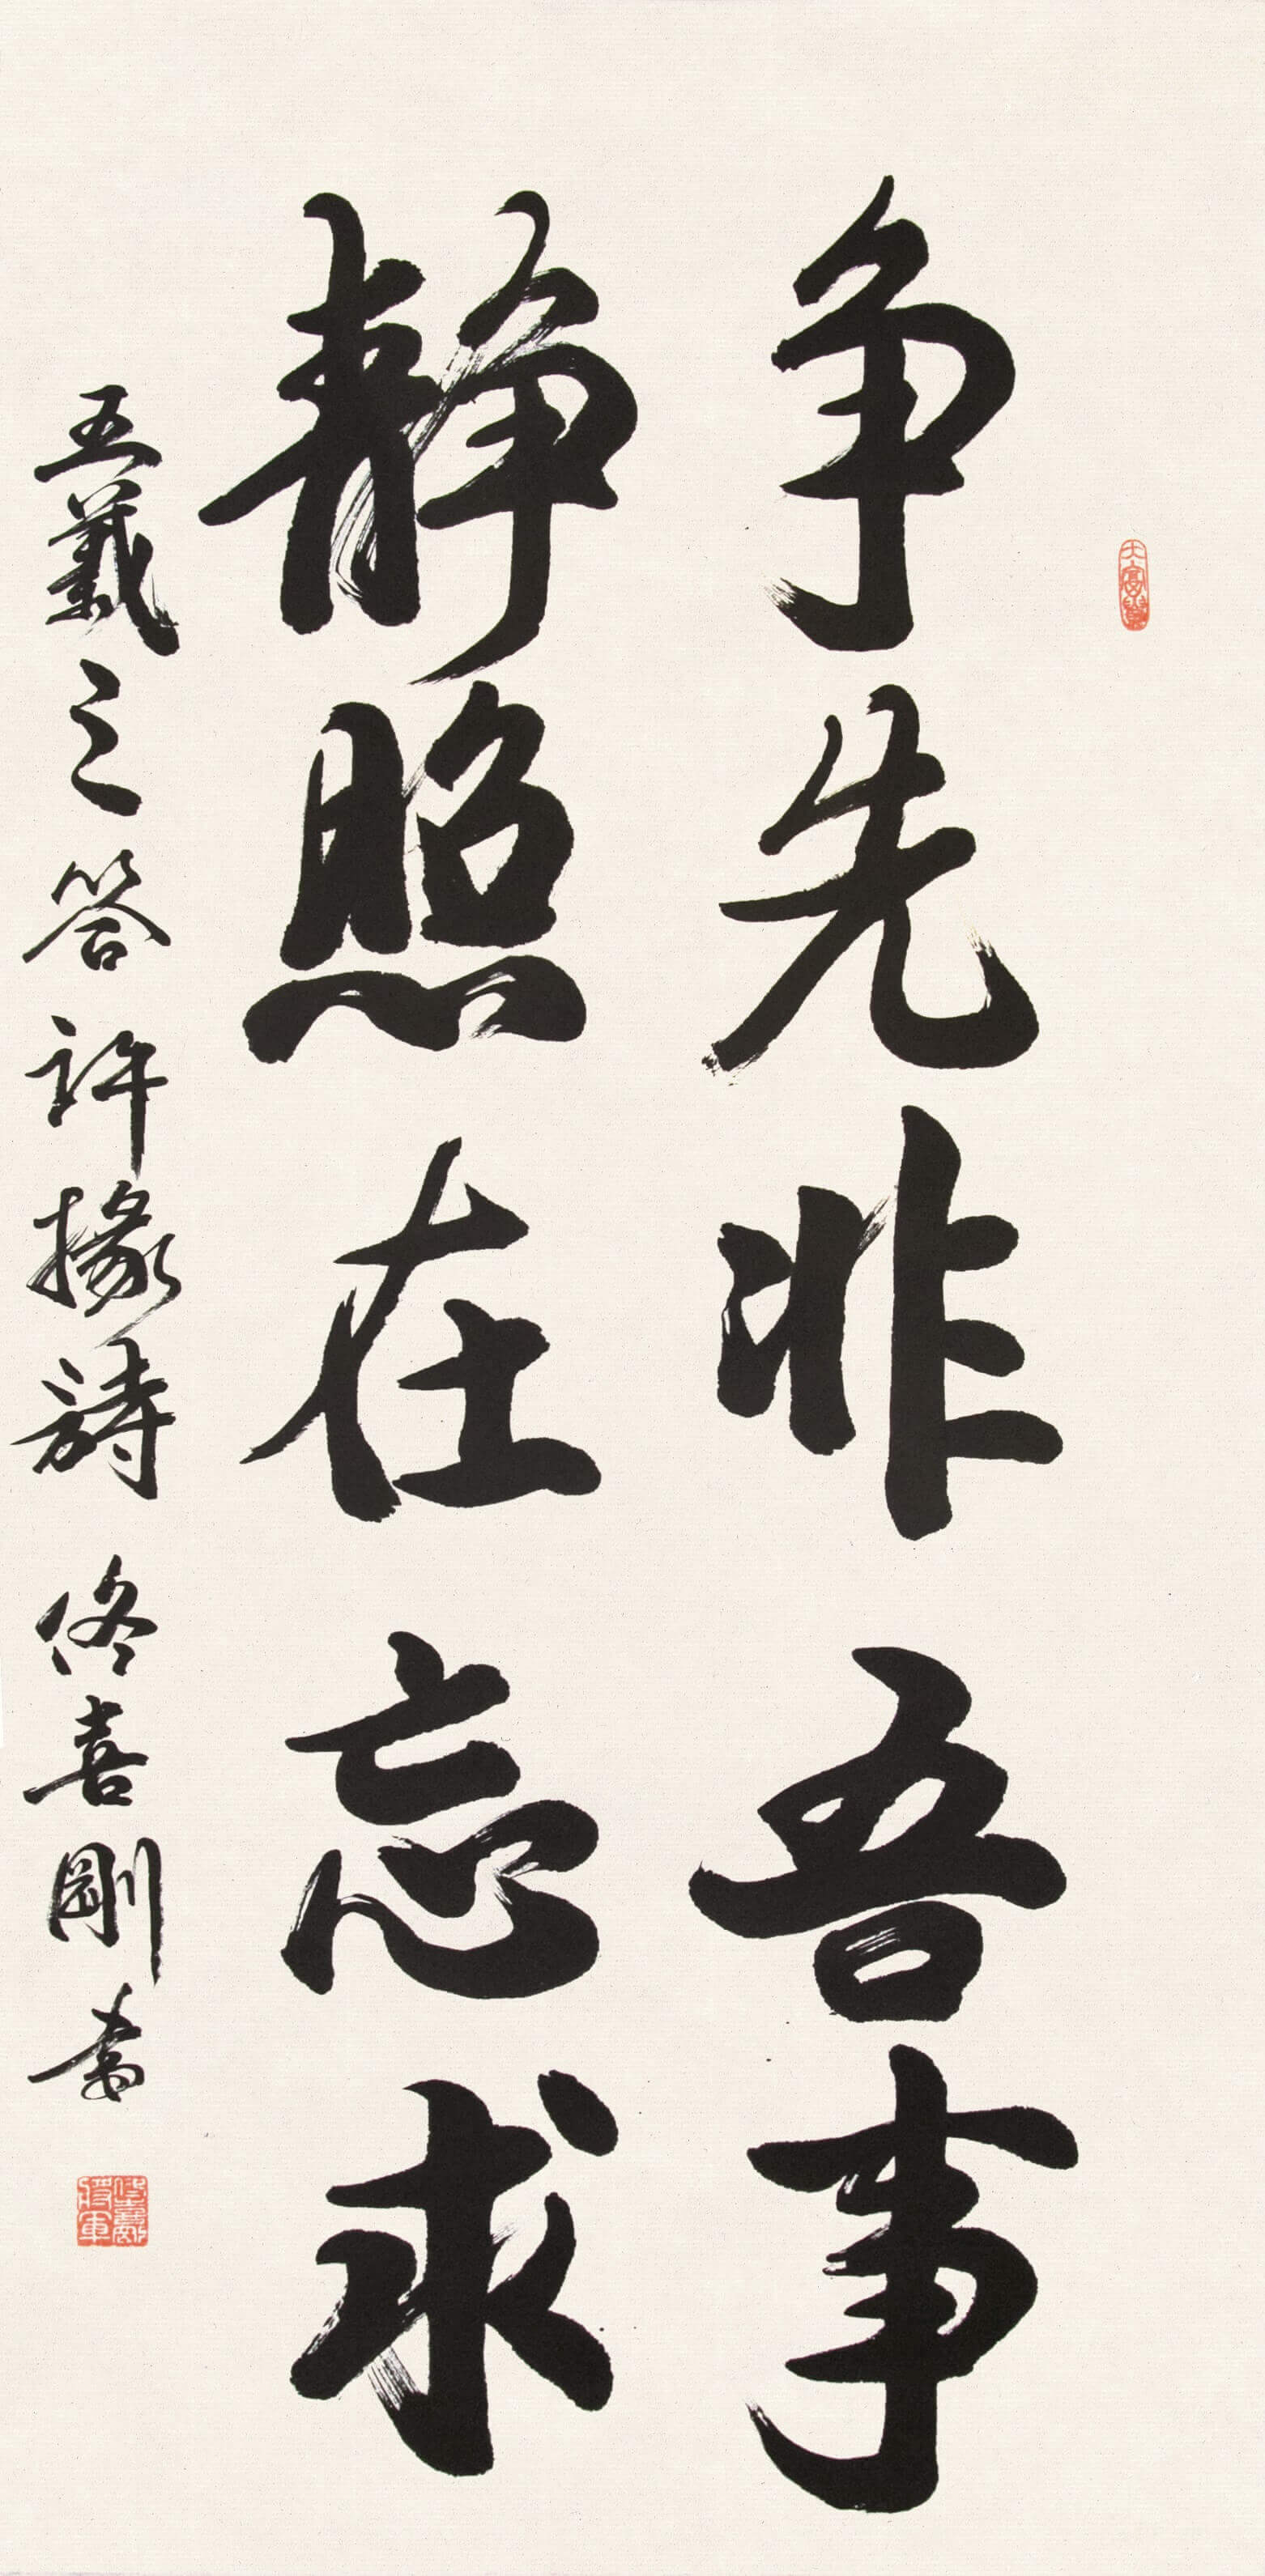 争先非吾事
静照在忘求
王羲之答許掾詩 佟喜剛書